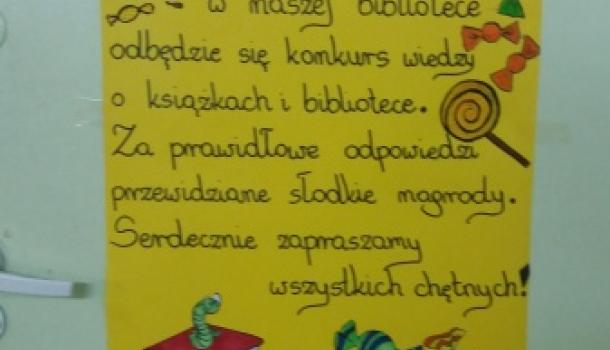 - w naszej bibliotece
odbędzie się konkurs wiedzy
o książkach i bibliotece.
Za prawidłowe odpowiedzi
przewidziane słodkie nagrody.
Serdecznie zapraszamy
wszystkich chętnych!